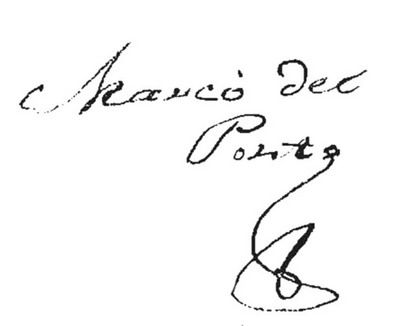 Marcò del
Ponte